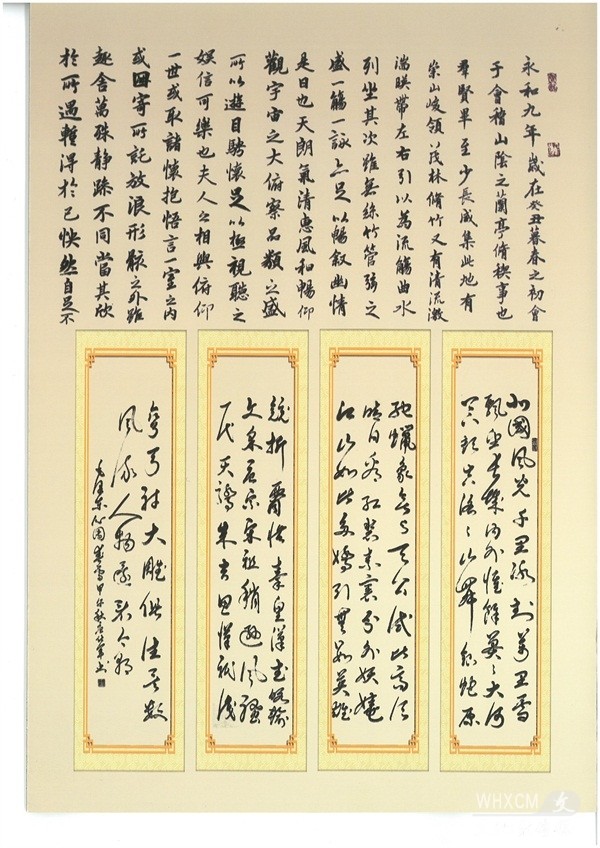 永和九年歲在癸丑暮春之初會
于會稽山陰之蘭亭脩稧事也
群賢畢至少長咸集此地有
崇山峻領茂林脩竹又有清流激
湍暎帶左右引以為流觴曲水
列坐其次雖無絲竹管弦之
盛一觴一詠亦足以暢敘幽情
是日也天朗氣清惠風和暢仰
觀宇宙之大俯察品類之盛
所以遊目騁懷足以極視聽之
娛信可樂也夫人之相與俯仰
一世或取諸懷抱悟言一室之內
或因寄所託放浪形骸之外雖
趣舍萬殊靜躁不同當其欣
於所遇暫得於己怏然自足不
北國風光千里冰封萬里雪
飄望長城內外惟餘莽莽大河
上下頓失滔滔山舞銀蛇原
馳蠟象欲與天公試比高須
晴日看紅裝素裹分外妖嬈
江山如此多嬌引無數英雄
競折腰惜秦皇漢武略輸
文采唐宗宋祖稍遜風騷
一代天驕成吉思汗祇識
彎弓射大雕俱往矣數
風流人物還看今朝
毛澤東沁園春雪甲午秋書
WHXCM 文